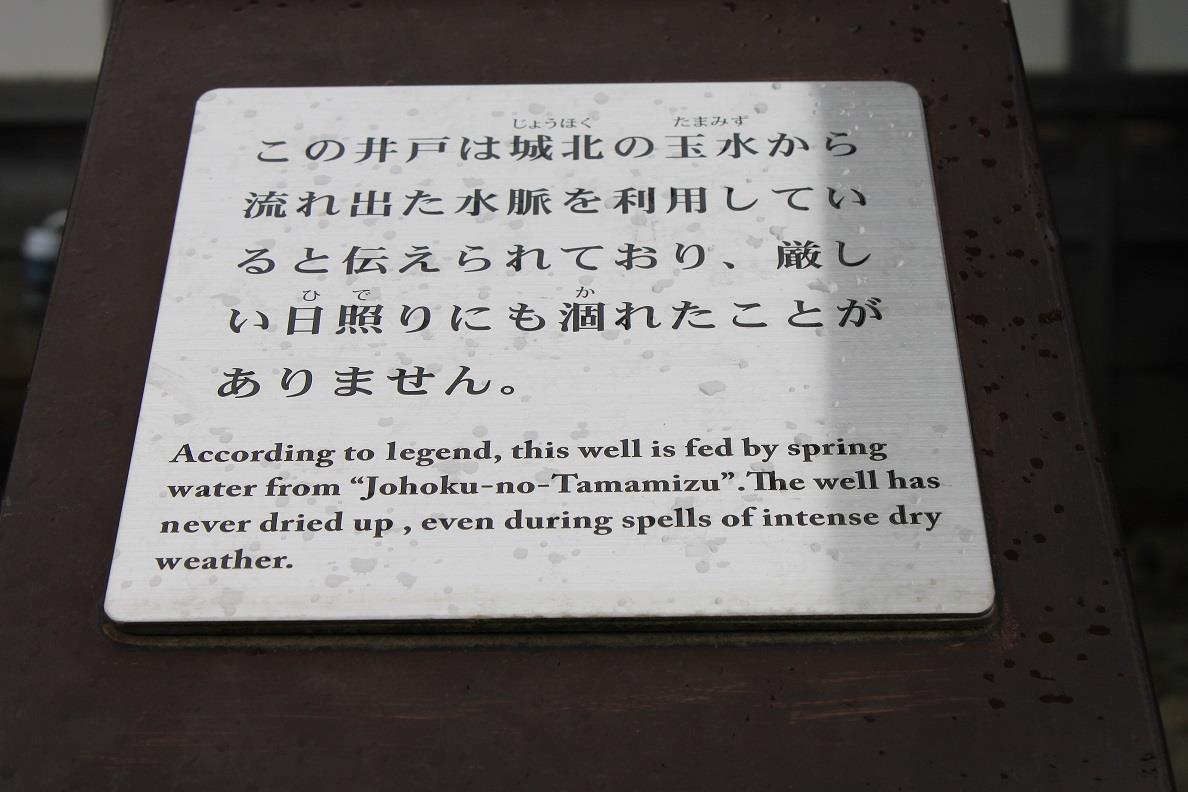 この井戸は城北の玉水から
じょうほく たまみず
流れ出た水脈を利用してい
ると伝えられており、厳し
い日照りにも涸れたことが
ひで か
ありません。
According to legend, this well is fed by spring
water from “Johoku-no-Tamamizu”.The well has
never dried up , even during spells of intense dry
weather.